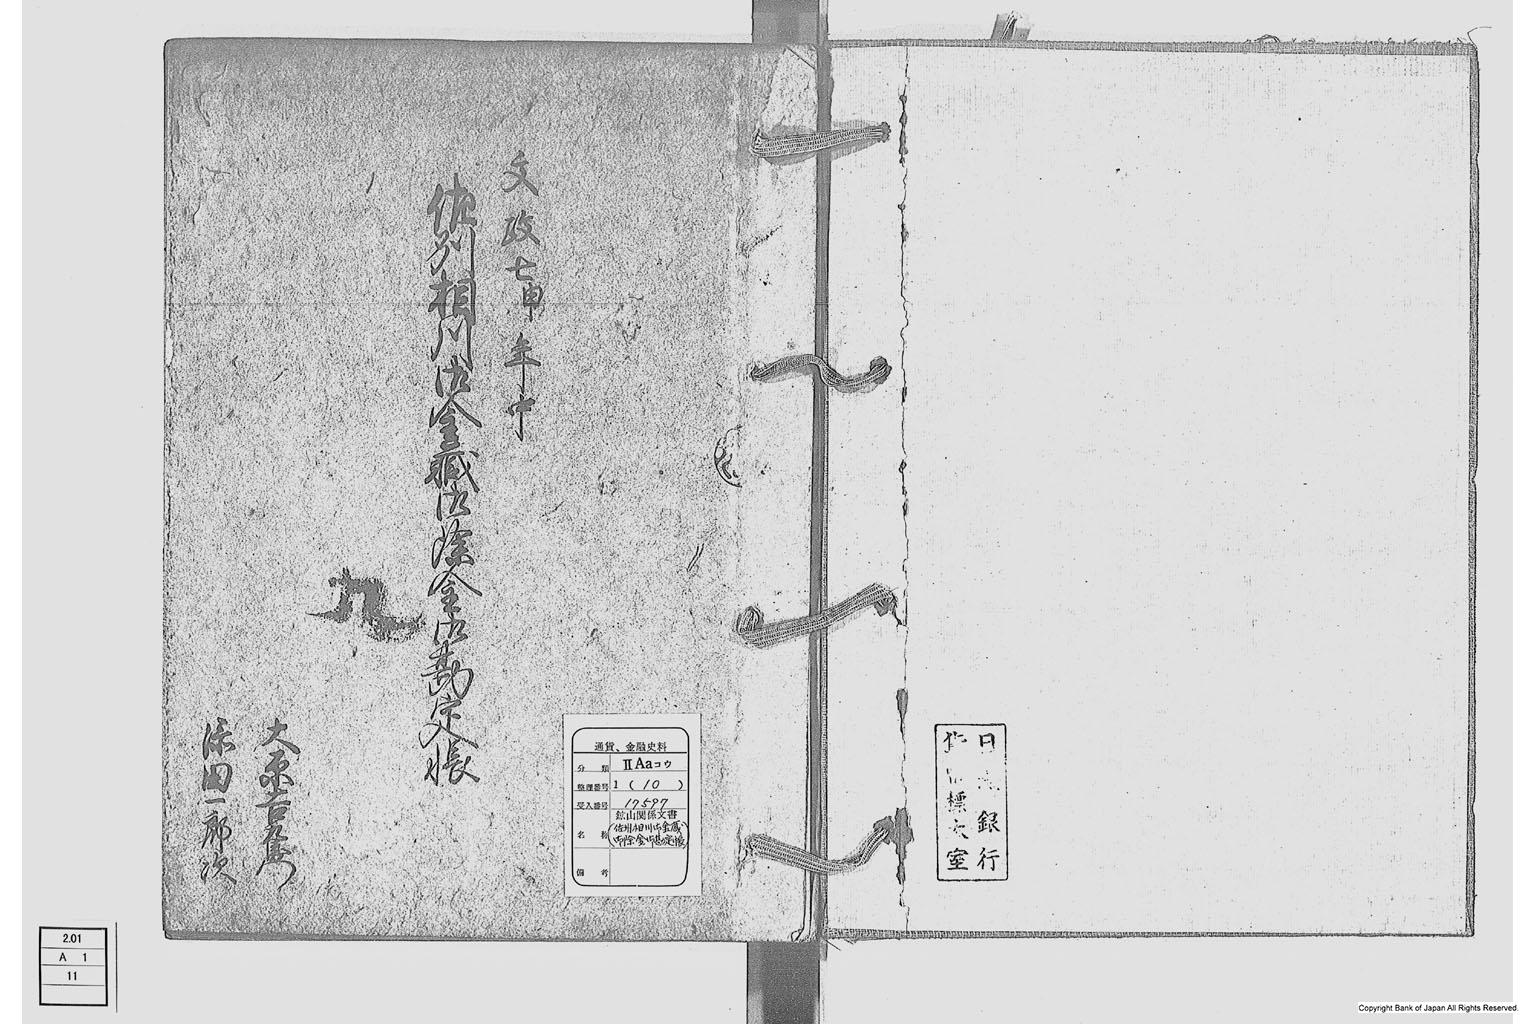 日 銀行
貨 標 室
文政七申年中
佐州相川御金蔵御除金御勘定帳
九
大原吉左衛門
添田一郎次
通貨、金融史料
分類 ⅡAaコウ
整理番号 1 (10)
受入番号 17597
名称 鉱山関係文書
(佐州相川御金蔵
御除金御勘定帳)
備考
2.01
A 1
11
Copyright Bank of Japan All Rights Reserved.